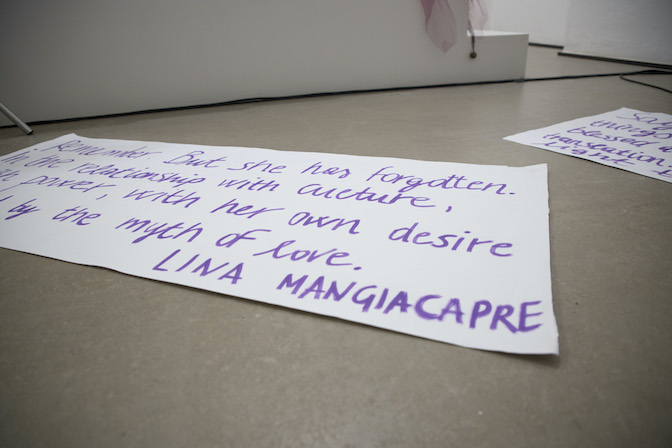 Remember. But she has forgotten.
In the relationship with culture,
power, with her own desire
by the myth of love.
LINA MANGIACAPRE
blessed